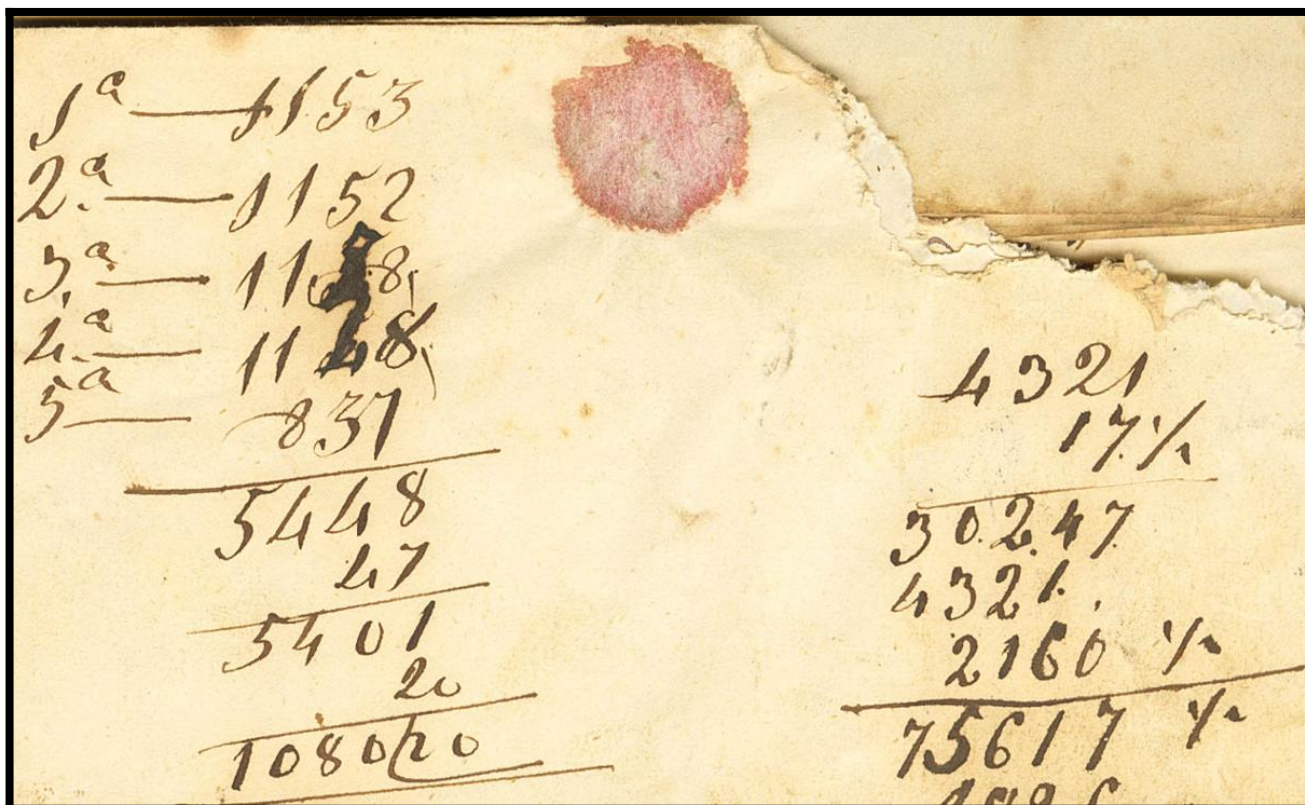 1ª — 1153
2.ª — 1152
3.ª —
4.ª — 1148
5ª — 837
5448
47
5401
20
108020
4321
17 ½
30247
4321.
2160 ½
75617 ½